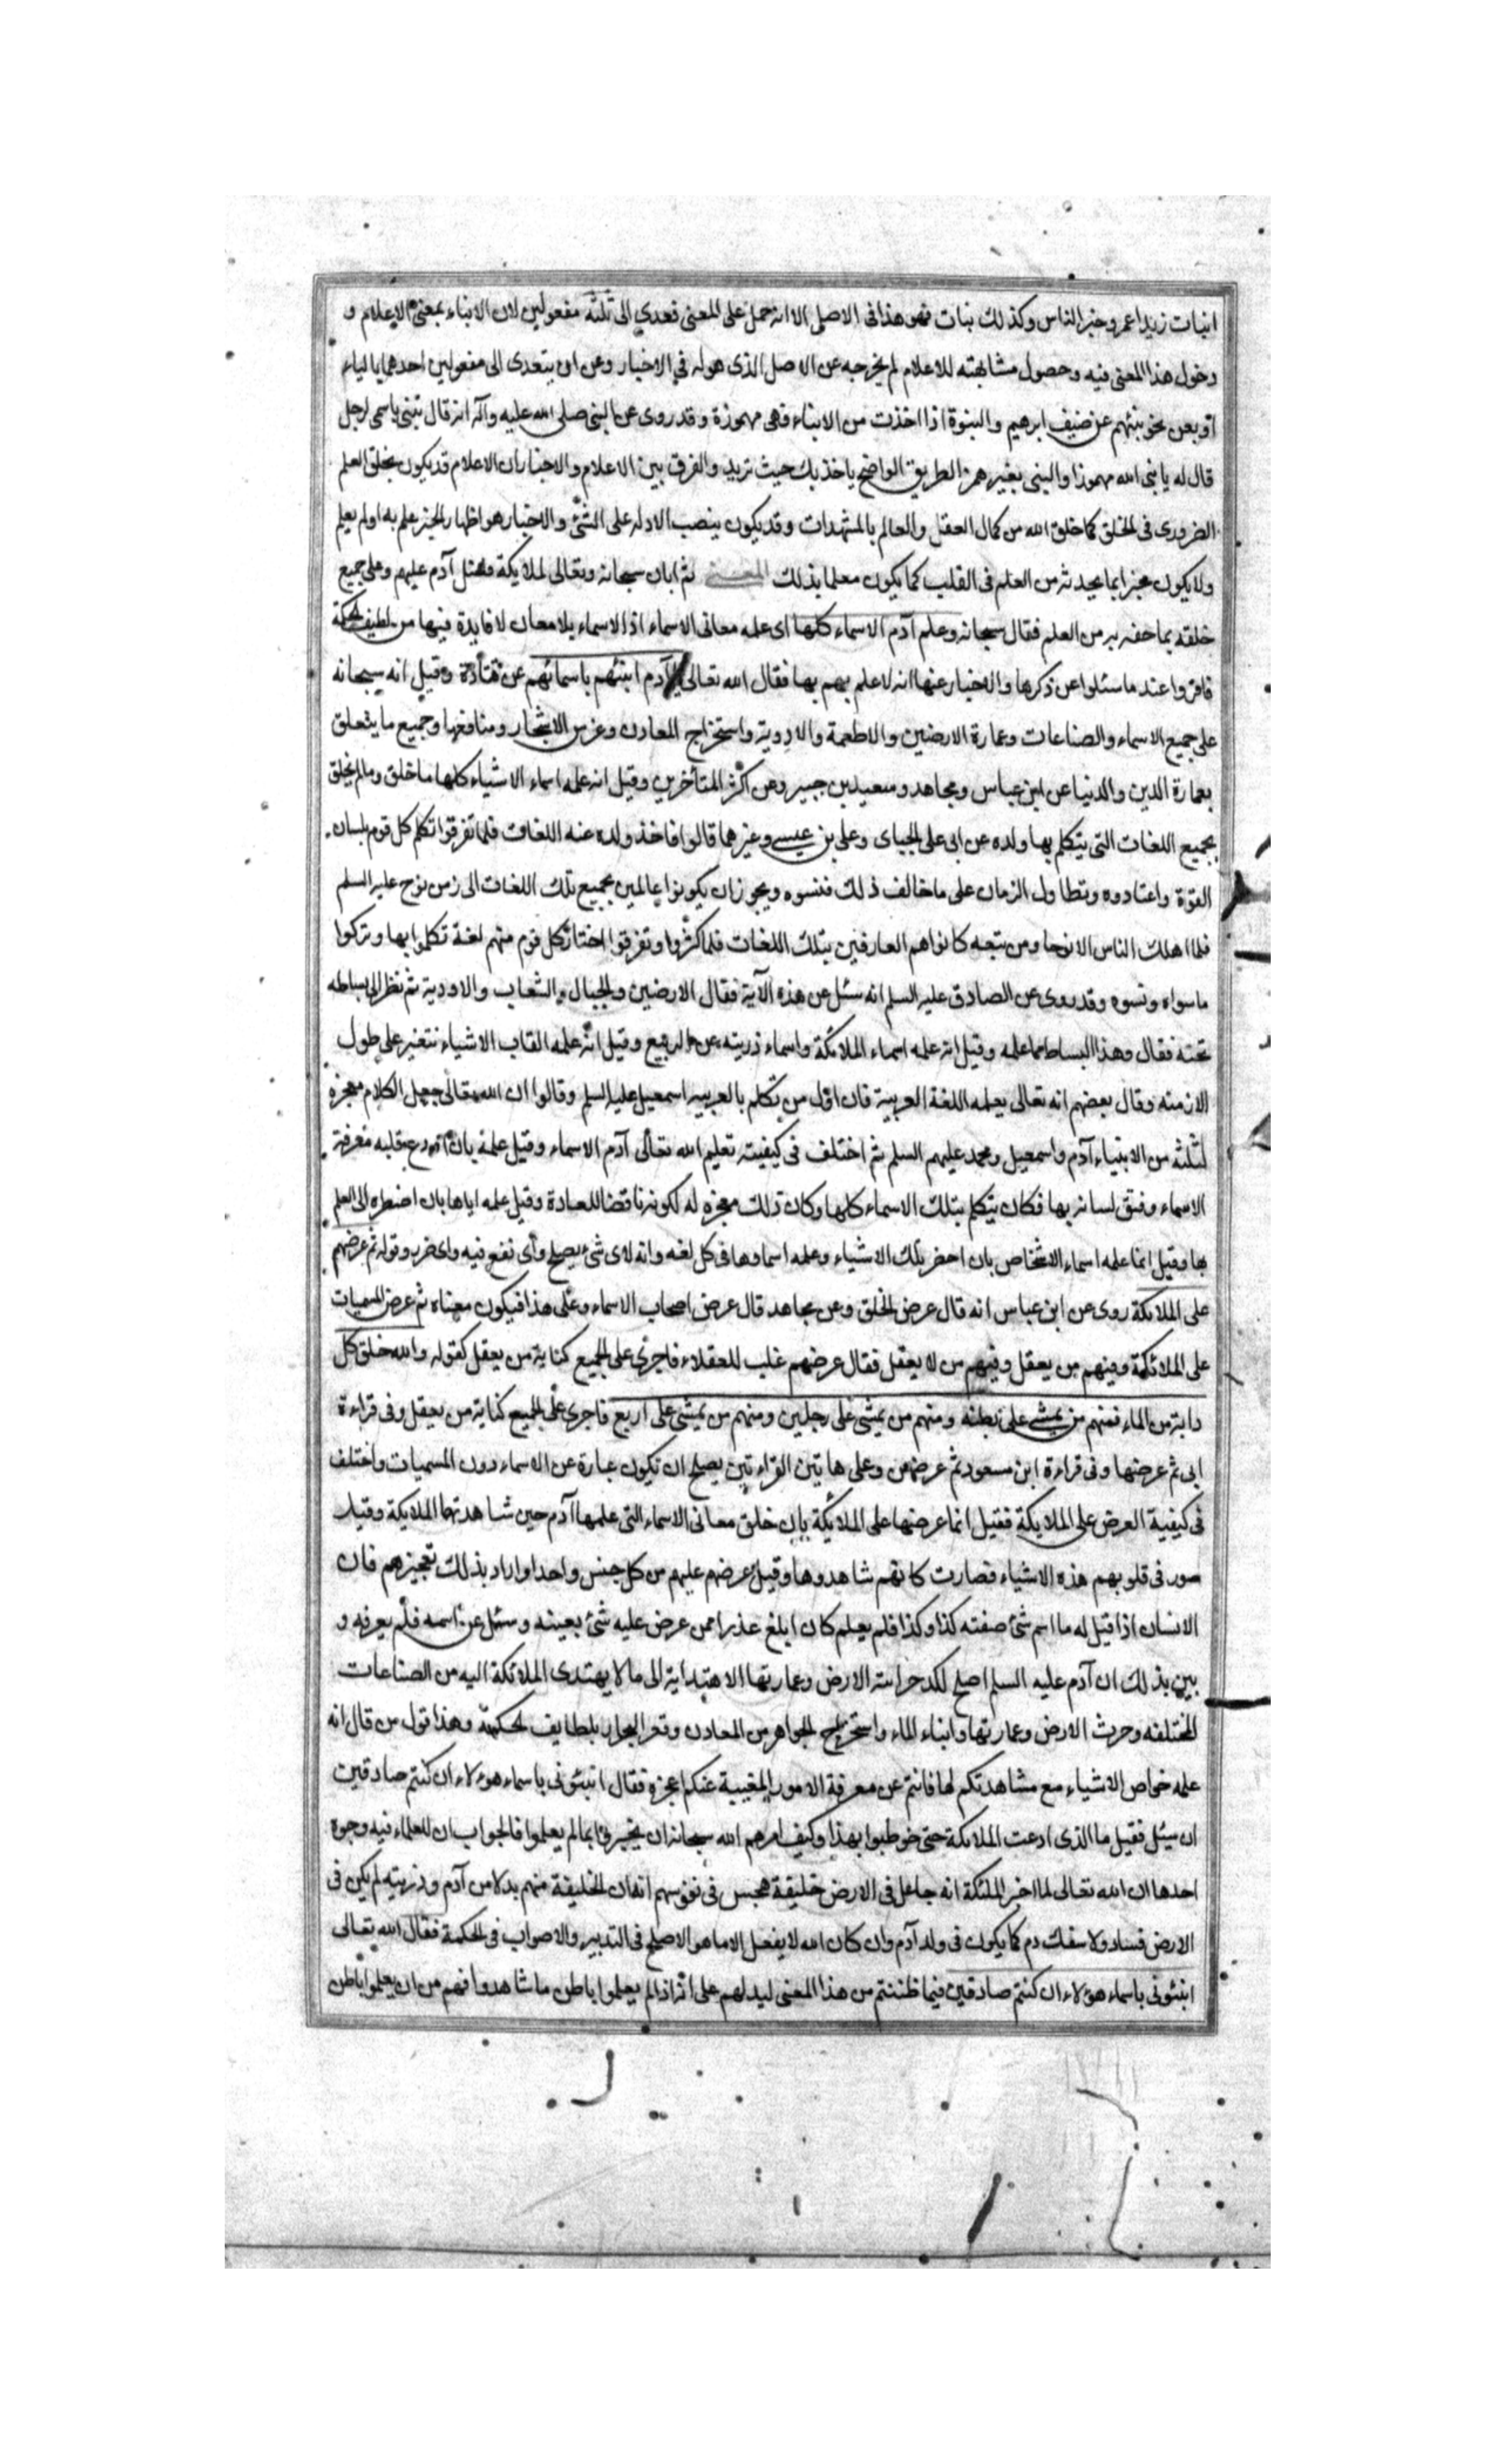 انبات زيدا عمرو خير الناس وكذلك نبات فهو هذا فى الاصل الا انه حمل على المعنى فعدي الى ثلثة مفعولين لان الانباء بمعنى الاعلام و
دخول هذا المعنى فيه وحصول مشابهته للاعلام لم يخرجه عن الاصل الذى هو له في الاخبار وعن ان يتعدى الى مفعولين احدهما بالياء
او بعن نحو نبئهم عن ضيف ابرهيم والنبوة اذا اخذت من الانباء فهى مهموزة وقد روى عن النبى صلى الله عليه وآله انه قال تنبى باسمى لرجل
قال له يا نبى الله مهموزا والنبى بغير همز الطريق الواضح ياخذ بك حيث تريد والفرق بين الاعلام والاخبار ان الاعلام قد يكون بخلق العلم
الضرورى فى الخلق كما خلق الله من كمال العقل والعالم بالمشهدات وقد يكون بنصب الادله على الشئ والاخبار هو اظهار الخبر علم به او لم يعلم
ولا يكون مخبرا بما يحدثه من العلم فى القلب كما يكون معلما بذلك المعنى ثم ابان سبحانه وتعالى لملايكة فضل آدم عليهم وعلى جميع
خلقه بما خصه به من العلم فقال سبحانه وعلم آدم الاسماء كلها اى علمه معانى الاسماء اذ الاسماء بلا معان لا فايدة فيها من لطيف الحكمة
فاقروا عند ما سئلوا عن ذكرها والاخبار عنها انه لا علم بهم بها فقال الله تعالى يا آدم انبئهم باسمائهم عن قتادة وقيل انه سبحانه
على جميع الاسماء والصناعات وعمارة الارضين والاطعمة والادوية واستخراج المعادن وغرس الاشجار ومنافعها وجميع ما يتعلق
بعمارة الدين والدنيا عن ابن عباس ومجاهد وسعيد بن جبير وعن اكثر المتأخرين وقيل انه علمه اسماء الاشياء كلها ما خلق وما لم يخلق
بجميع اللغات التى يتكلم بها ولده عن ابى على الجباى وعلى بن عيسى وغيرهما قالوا فاخذ ولده عنه اللغات فلما تفرقوا تكلم كل قوم بلسان
القوة واعتادوه وتطاول الزمان على ما خالف ذلك فنسوه ويجوز ان يكونوا عالمين بجميع تلك اللغات الى زمن نوح عليه السلم
فلما اهلك الناس الا نوحا ومن تبعه كانوا هم العارفين بتلك اللغات فلما كثروا وتفرقوا اختار كل قوم منهم لغة تكلموا بها وتركوا
ما سواه ونسوه وقد روى عن الصادق عليه السلم انه سئل عن هذه الآية فقال الارضين والجبال والشعاب والاودية ثم نظر الى بساط
تحته فقال وهذا البساط مما علمه وقيل انه علمه اسماء الملائكة واسماء ذريته عن الربيع وقيل انه علمه القاب الاشياء نتغير على طول
الازمنه وقال بعضهم انه تعالى يعلمه اللغة العربية فان اول من تكلم بالعربيه اسمعيل عليه السلم وقالوا ان الله تعالى جعل الكلام معجزة
لثلثة من الانبياء آدم واسمعيل ومحمد عليهم السلم ثم اختلف فى كيفيته تعليم الله تعالى آدم الاسماء وقيل علمه بان اودع قلبه معرفة
الاسماء وفتق لسانه بها فكان يتكلم بتلك الاسماء كلها وكان ذلك معجزة له لكونه ناقضا للعادة وقيل علمه اياها بان اضطره الى العلم
بها وقيل انما علمه اسماء الاشخاص بان احضر تلك الاشياء وعلمه اسماوها فى كل لغه وانه لاى شئ يصلح واى نفع فيه واى ضر وقوله ثم عرضهم
على الملائكة روى عن ابن عباس انه قال عرض الخلق وعن مجاهد قال عرض اصحاب الاسماء وعلى هذا فيكون معناه ثم عرض المسميات
على الملائكة وفيهم من يعقل وفيهم من لا يعقل فقال عرضهم غلب للعقلاء فاجرى على الجميع كناية من يعقل كقوله والله خلق كل
دابة من الماء فمنهم من يمشى على بطنه ومنهم من يمشى على رجلين ومنهم من يمشى على اربع فاجرى على الجميع كناية من يعقل وفى قراءة
ابى ثم عرضها وفى قراءة ابن مسعود ثم عرضهن وعلى هاتين القراءتين يصلح ان تكون عبارة عن الاسماء دون المسميات واختلف
فى كيفية العرض على الملايكة فقيل انما عرضها على الملائكة بان خلق معانى الاسماء التى علمها آدم حين شاهدتها الملايكة وقيل
صور فى قلوبهم هذه الاشياء فصارت كانهم شاهدوها وقيل عرضهم عليهم من كل جنس واحدا واراد بذلك تعجيزهم فان
الانسان اذا قيل له ما اسم شئ صفته كذا وكذا فلم يعلم كان ابلغ عذرا ممن عرض عليه شئ بعينه وسئل عن اسمه فلم يعرفه و
بين بذلك ان آدم عليه السلم اصلح لكدخدائية الارض وعمارتها الاهتدايه الى ما لا يهتدى الملائكة اليه من الصناعات
المختلفه وحرث الارض وعمارتها وانباء الماء واستخراج الجواهر من المعادن وقعر البحار بلطايف الحكمة وهذا قول من قال انه
علمه خواص الاشياء مع مشاهدتكم لها فانتم عن معرفة الامور المغيبة عنكم اعجز فقال انبئونى باسماء هؤلاء ان كنتم صادقين
ان سئل فقيل ما الذى ادعت الملائكة حتى خوطبوا بهذا وكيف امرهم الله سبحانه ان يخبروا بما لم يعلموا فالجواب ان للعلماء فيه وجوه
احدها ان الله تعالى لما اخبر الملئكة انه جاعل فى الارض خليفة هجس فى نفوسهم انه ان الخليفة منهم بدلا من آدم وذريته لم يكن فى
الارض فساد ولا سفك دم كما يكون فى ولد آدم وان كان الله لا يفعل الا ما هو الاصلح فى التدبير والاصواب فى الحكمة فقال الله تعالى
انبئونى باسماء هؤلاء ان كنتم صادقين فيما ظننتم من هذا المعنى ليدلهم على انه اذا لم يعلموا باطن ما شاهدوا فهم من ان يعلموا باطن